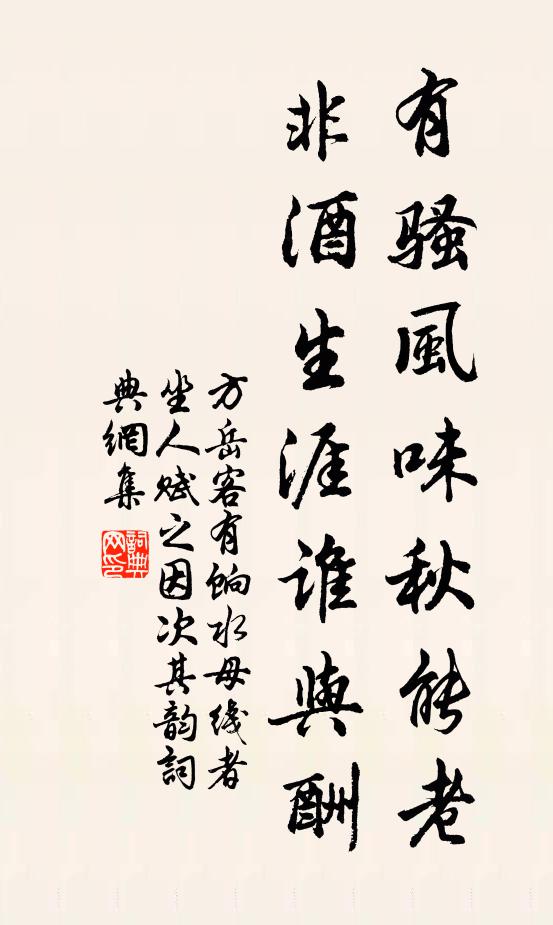 有骚風味秋能老
非酒生涯谁與酬
方岳客有餉水母线者
坐人赋之因次其韵詞
典網集
詞典网印